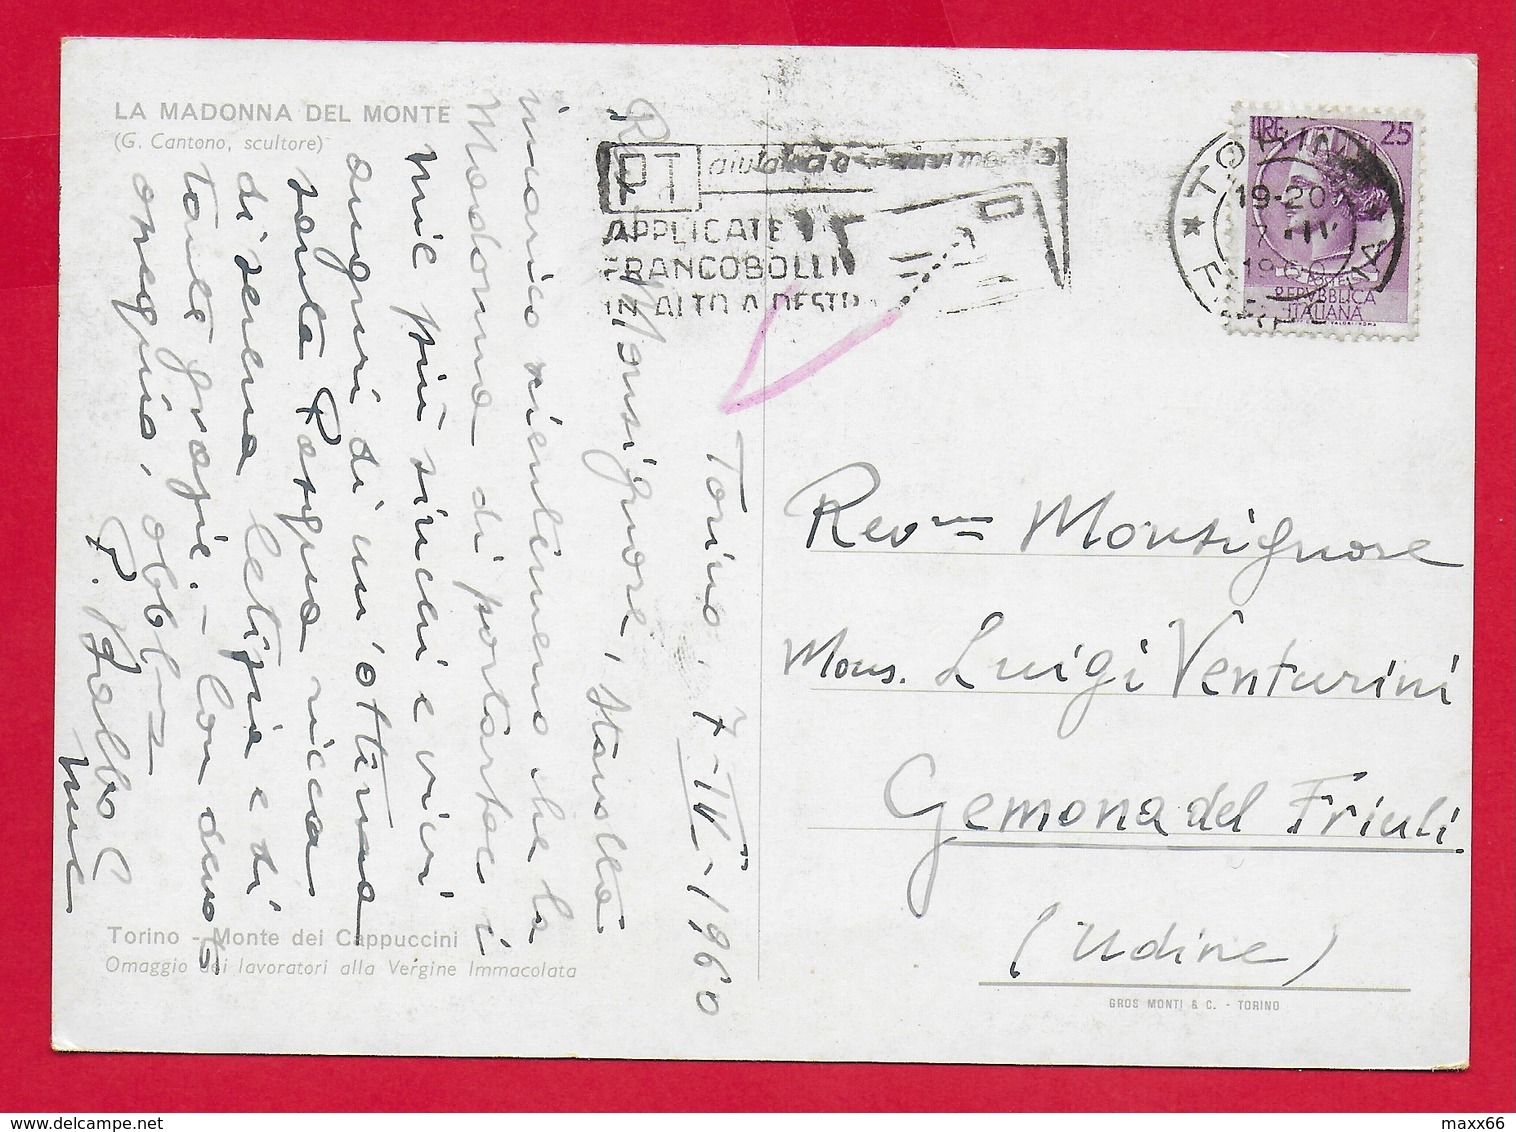 LA MADONNA DEL MONTE
(G. Cantono, scultore)
PT aiutate
APPLICATE I
FRANCOBOLLI
IN ALTO A DESTR
TORINO
19-20
7 IV
1960
FERROVIA
LIRE 25
POSTE
REPVBBLICA
ITALIANA
Torino, 7-IV-1960
Rev. Monsignore, stavolta
incarico nientemeno che la
Madonna di portarLe i
miei più sinceri e vivi
auguri di un'ottima
santa Pasqua ricca
di serena letizia e di
tante grazie. - Con devoto
ossequio, obbl.
P.
Rev.mo Monsignore
Mons. Luigi Venturini
Gemona del Friuli
(Udine)
Torino - Monte dei Cappuccini
Omaggio dei lavoratori alla Vergine Immacolata
GROS MONTI & C. - TORINO
maxx66